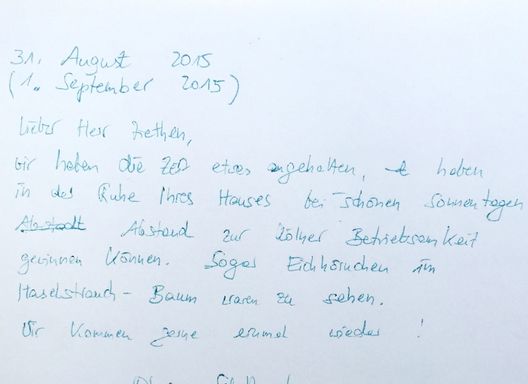 31. August 2015
(1. September 2015)
Lieber Herr Ziethen,
wir haben die Zeit etwas angehalten, haben
in der Ruhe Ihres Hauses bei schönen Sonnentagen
Abstand zur Kölner Betriebsamkeit
gewinnen können. Sogar Eichhörnchen im
Haselstrauch - Baum waren zu sehen.
Wir kommen gerne einmal wieder !